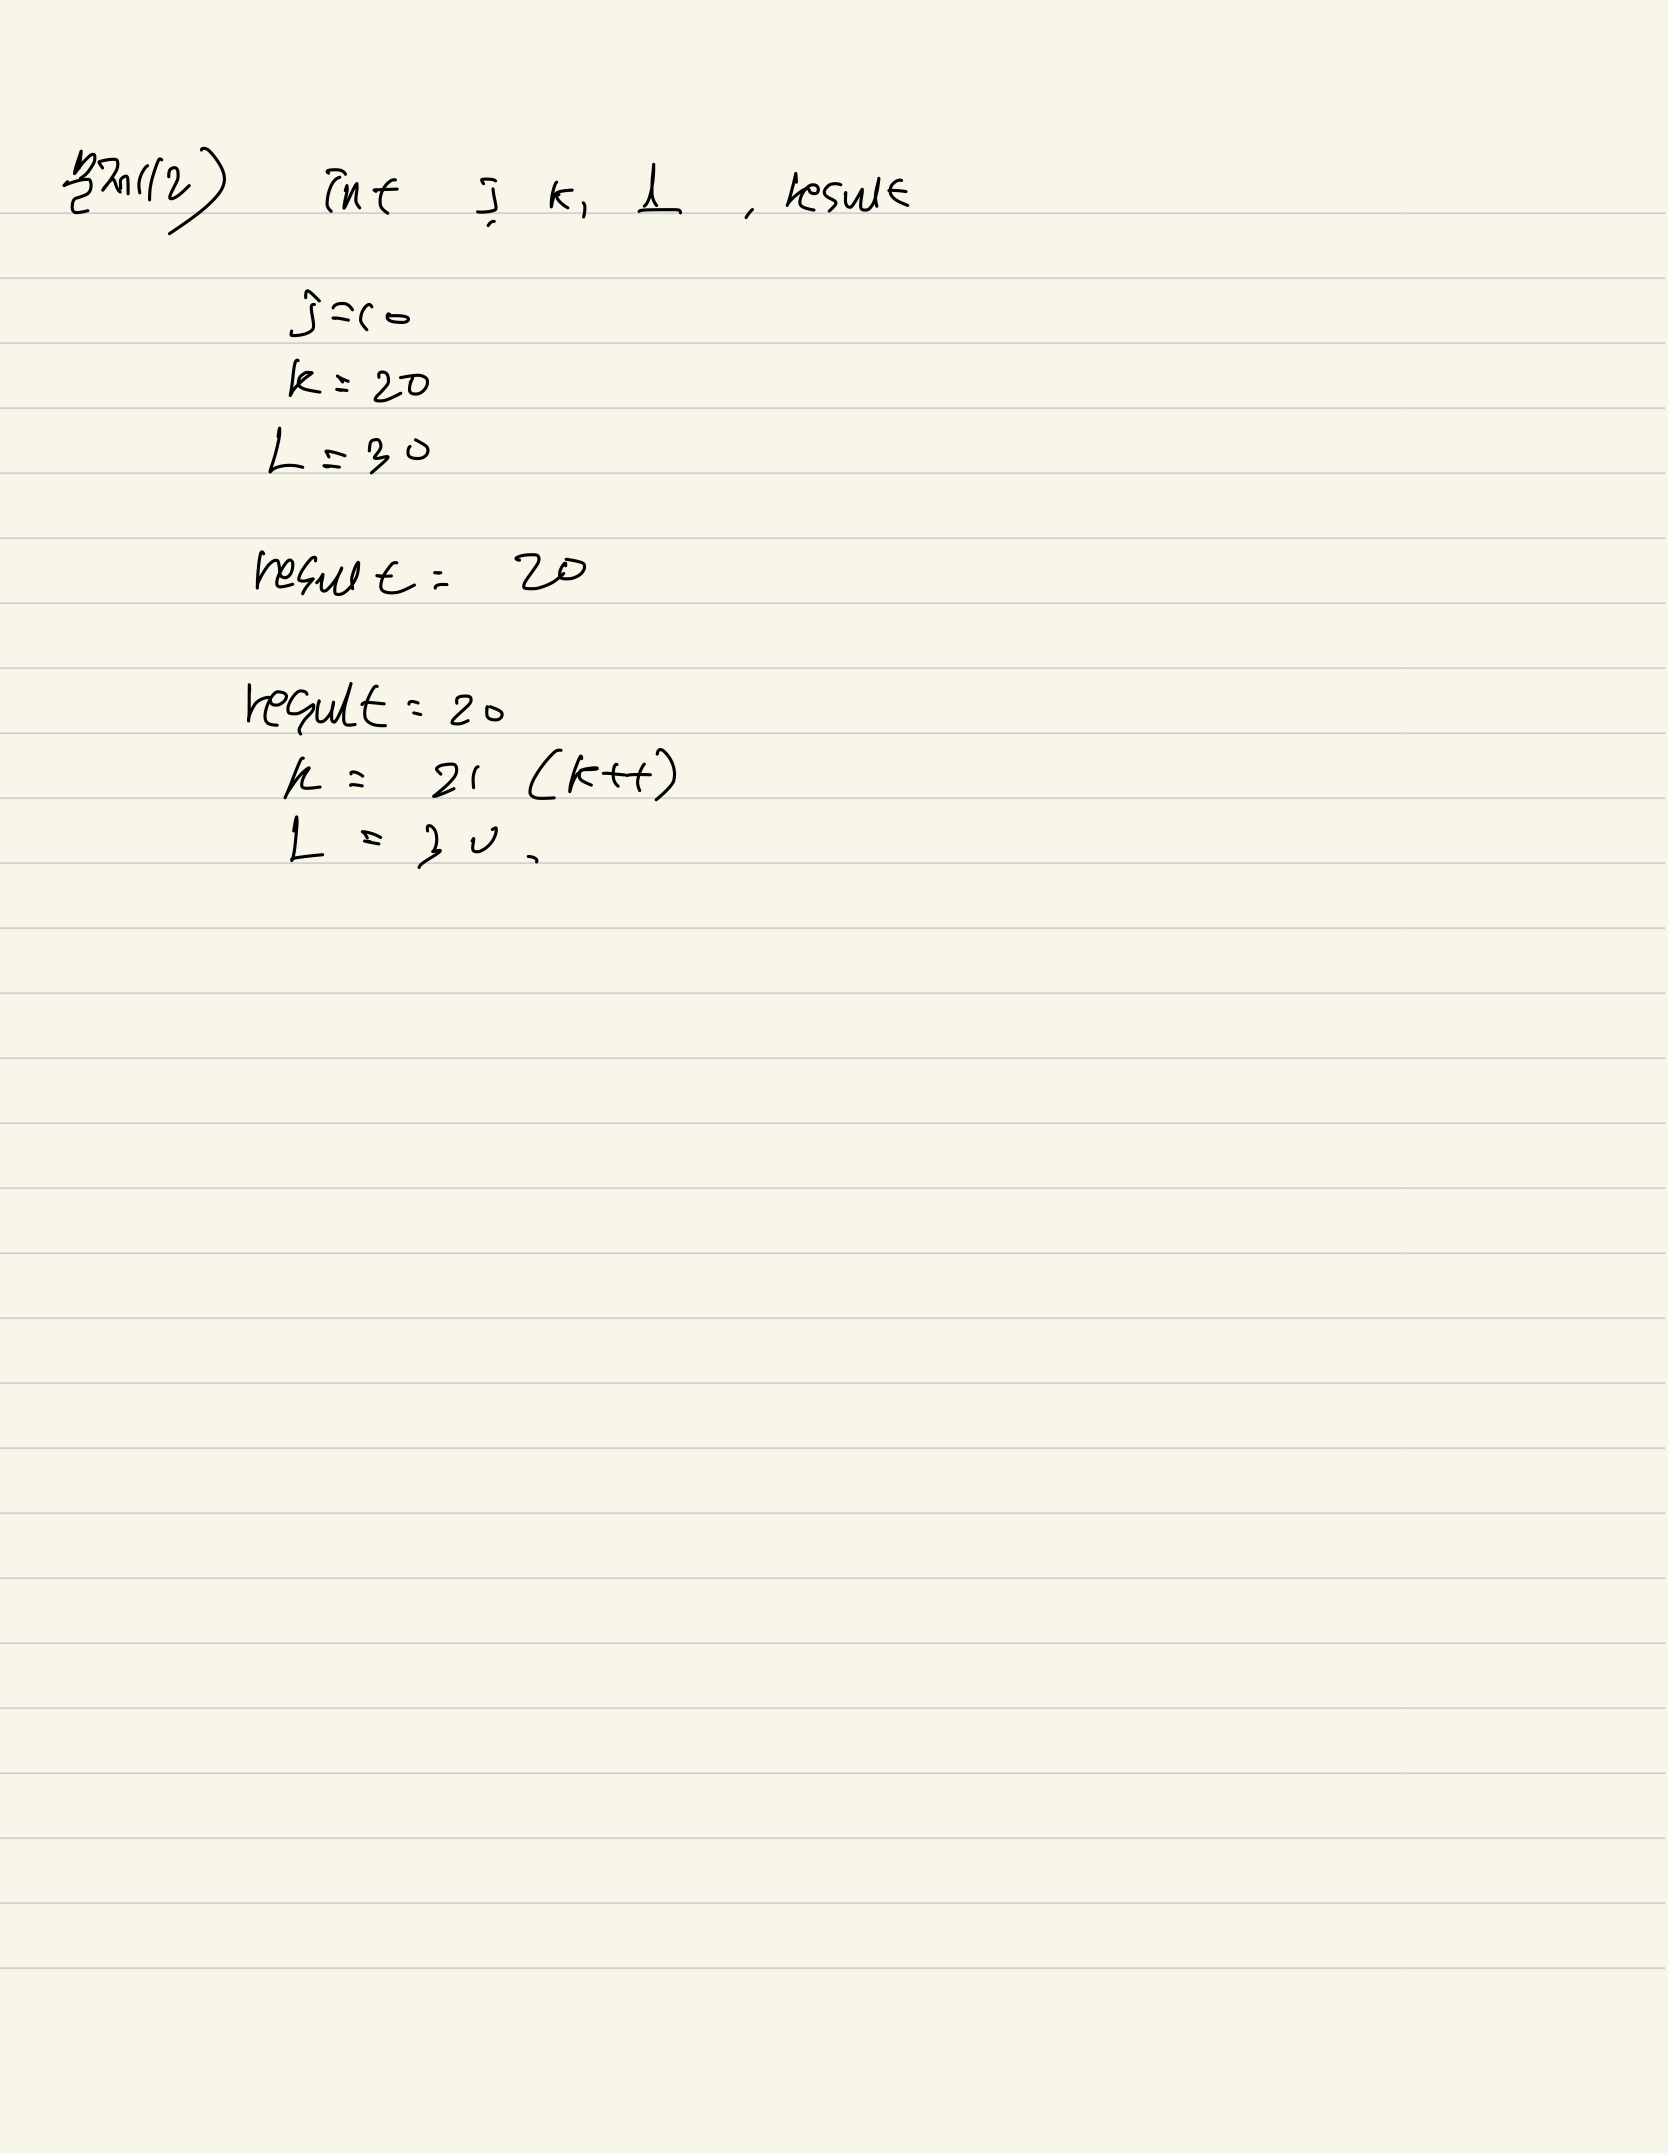 문제12) int j, k, L, result
j=10
k=20
L=30
result= 20
result=20
k= 21 (k++)
L=30.